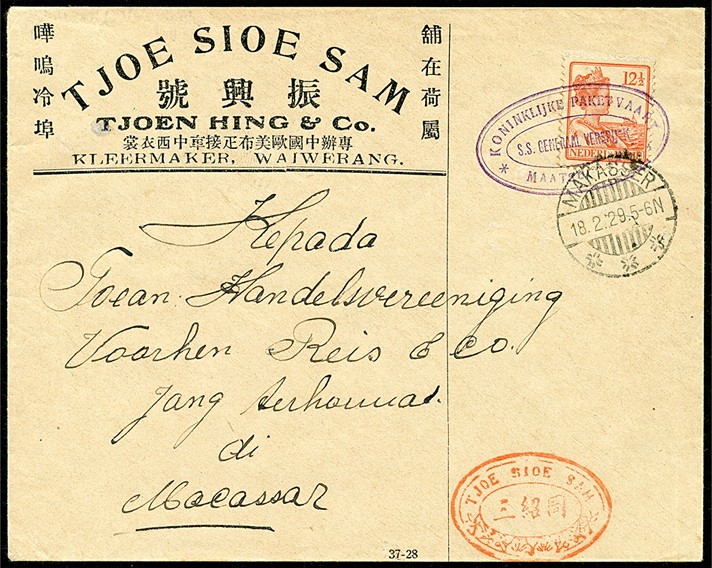 舖在荷屬
嘩嗚冷埠
TJOE SIOE SAM
號興振
TJOEN HING & Co.
專辦中國歐美布疋接車中西衣裳
KLEERMAKER, WAIWERANG.
12½
NEDERL
KONINKLIJKE PAKETVAART
S.S. GENERAAL VERSPIJCK
MAATS
MAKASSER
18.2.29.5-6N
Kepada
Toean Handelsvereeniging
Voorhen Reis & co.
Jang terhormat.
di
Macassar
TJOE SIOE SAM
三紹周
37-28